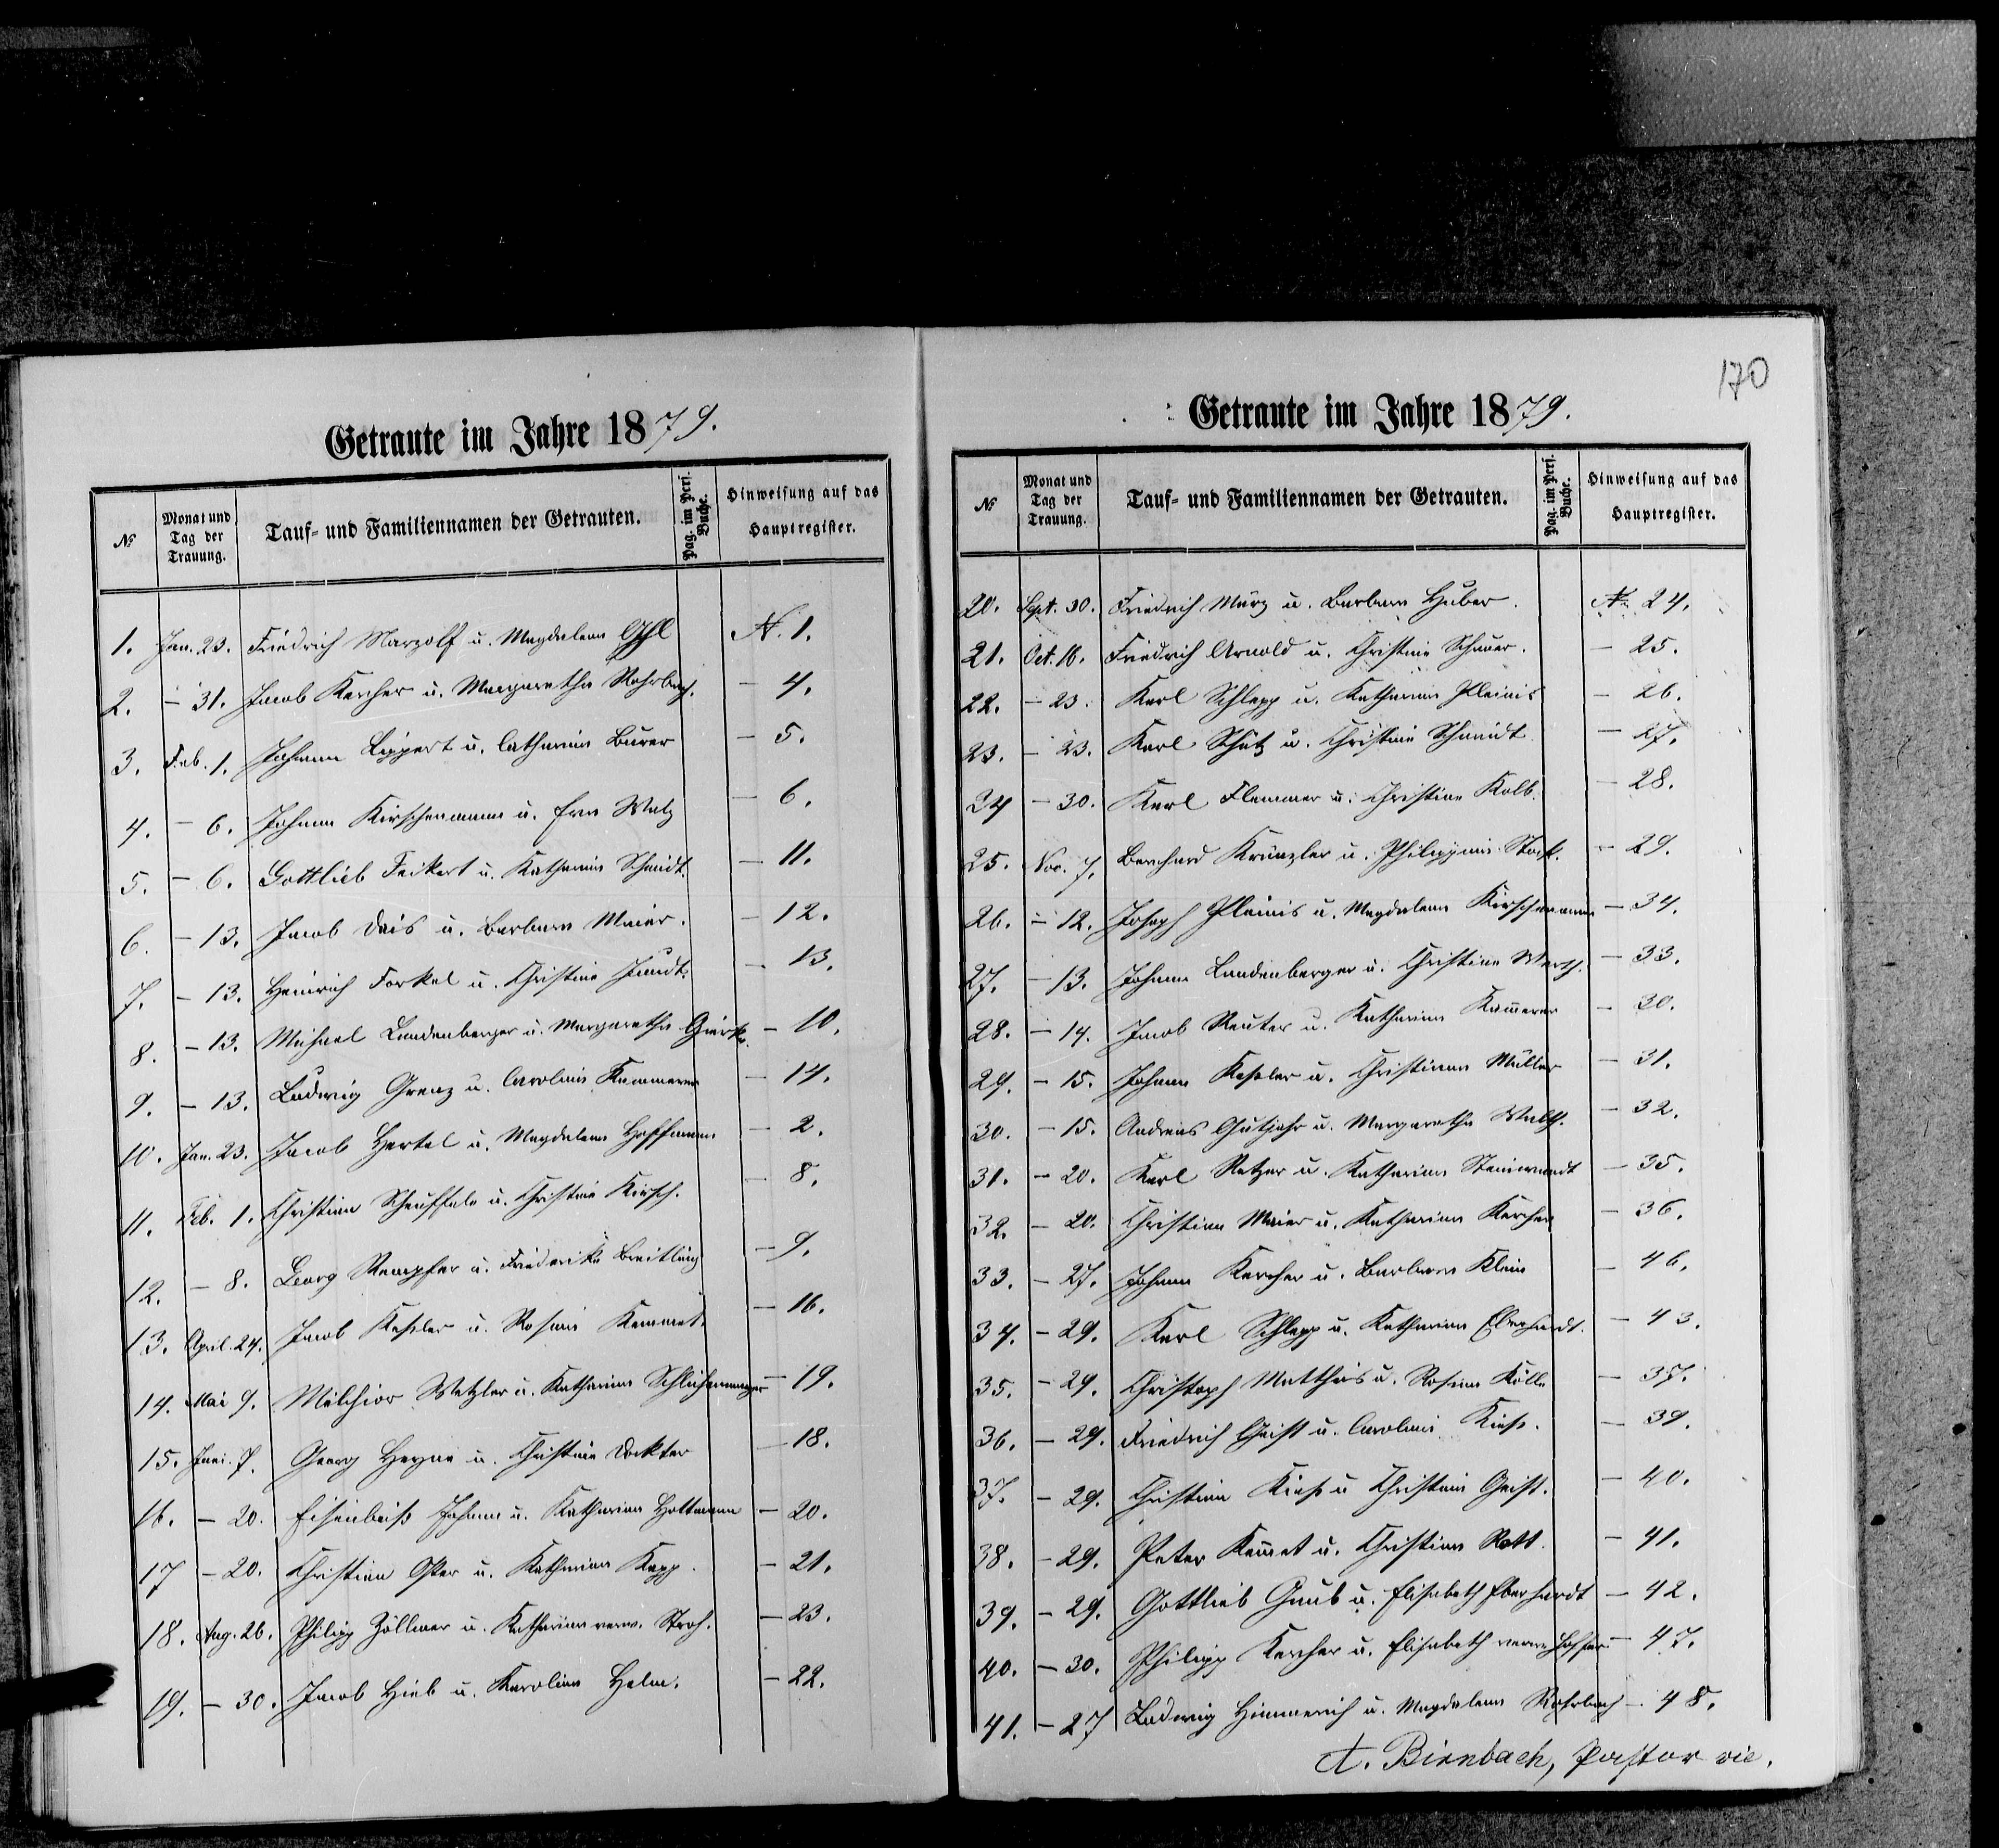 170
Getraute im Jahre 1879.
№ Monat und Tag der Trauung. Tauf- und Familiennamen der Getrauten. Pag. im Pers. Buche. Hinweisung auf das Hauptregister.
1. Jan. 23. Friedrich Marzolf u. Magdalena Ehl N. 1.
2. - 31. Jacob Kercher u. Margaretha Rohrbach. - 4.
3. Feb. 1. Johann Lippert u. Catharina Burer - 5.
4. - 6. Johann Kirschenmann u. Eva Walz - 6.
5. - 6. Gottlieb Feikert u. Katharina Schmidt. - 11.
6. - 13. Jacob Dais u. Barbara Maier. - 12.
7. - 13. Heinrich Forkel u. Christine Jundt. - 13.
8. - 13. Michael Landenberger u. Margaretha - 10.
9. - 13. Ludwig Grenz u. Carolina Kammerer - 14.
10. Jan. 23. Jacob Hertel u. Magdalena Hoffmann - 2.
11. Feb. 1. Christian Scheuffele u. Christine Kirsch. - 8.
12. - 8. Georg Rempfer u. Friederike Breitling - 9.
13. April. 24. Jacob Keßler u. Rosina Kemmet. - 16.
14. Mai 9. Melchior Wetzler u. Katharina - 19.
15. Juni. 7. Georg Heyne u. Christine Dockter - 18.
16. - 20. Eisenbeiß Johann u. Katharina Hottmann - 20.
17 - 20. Christian Oster u. Katharina Kapp. - 21.
18. Aug. 26. Philipp Zöllmer u. Katharina verw. Stroh. - 23.
19. - 30. Jacob Hieb u. Karolina Helm. - 22.
Getraute im Jahre 1879.
№ Monat und Tag der Trauung. Tauf- und Familiennamen der Getrauten. Pag. im Pers. Buche. Hinweisung auf das Hauptregister.
20. Sept. 30. Friedrich März u. Barbara Huber. N. 24.
21. Oct. 16. Friedrich Arnold u. Christine Schauer. - 25.
22. - 23. Karl Schlepp u. Katharina Pleinis - 26.
23. - 23. Karl Schütz u. Christine Schmidt - 27.
24 - 30. Karl Flemmer u. Christina Kolb. - 28.
25. Nov. 7. Bernhard Kränzler u. Philippine Stock. - 29.
26. - 12. Joseph Pleinis u. Magdalena Kirschenmann - 34.
27. - 13. Johann Landenberger u. Christina Werth. - 33.
28. - 14. Jacob Reuter u. Katharina Kam̄erer - 30.
29. - 15. Johann Keßler u. Christina Müller - 31.
30. - 15. Andreas Gutjahr u. Margaretha Walth. - 32.
31. - 20. Karl Retzer u. Katharina Steinwandt - 35.
32. - 20. Christian Maier u. Katharina Kercher - 36.
33. - 27. Johann Kercher u. Barbara Klein - 46.
34. - 29. Karl Schlepp u. Katharina Eberhardt. - 43.
35. - 29. Christoph Mattheis u. Rosina Kölle - 37.
36. - 29. Friedrich Geist u. Carolina Kieß. - 39.
37. - 29. Christian Kieß u Christina Geist. - 40.
38. - 29. Peter Kem̄et u. Christina Rott. - 41.
39. - 29. Gottlieb Gaub u. Elisabeth Eberhardt - 42.
40. - 30. Philipp Kercher u. Elisabeth verw. - 47.
41. - 27 Ludwig Himmerich u. Magdalena Rohrbach - 48.
A. Birnbach, Pastor vic.